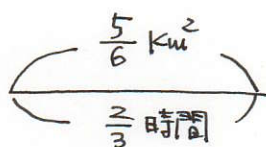 5/6 Km²
2/3 時間